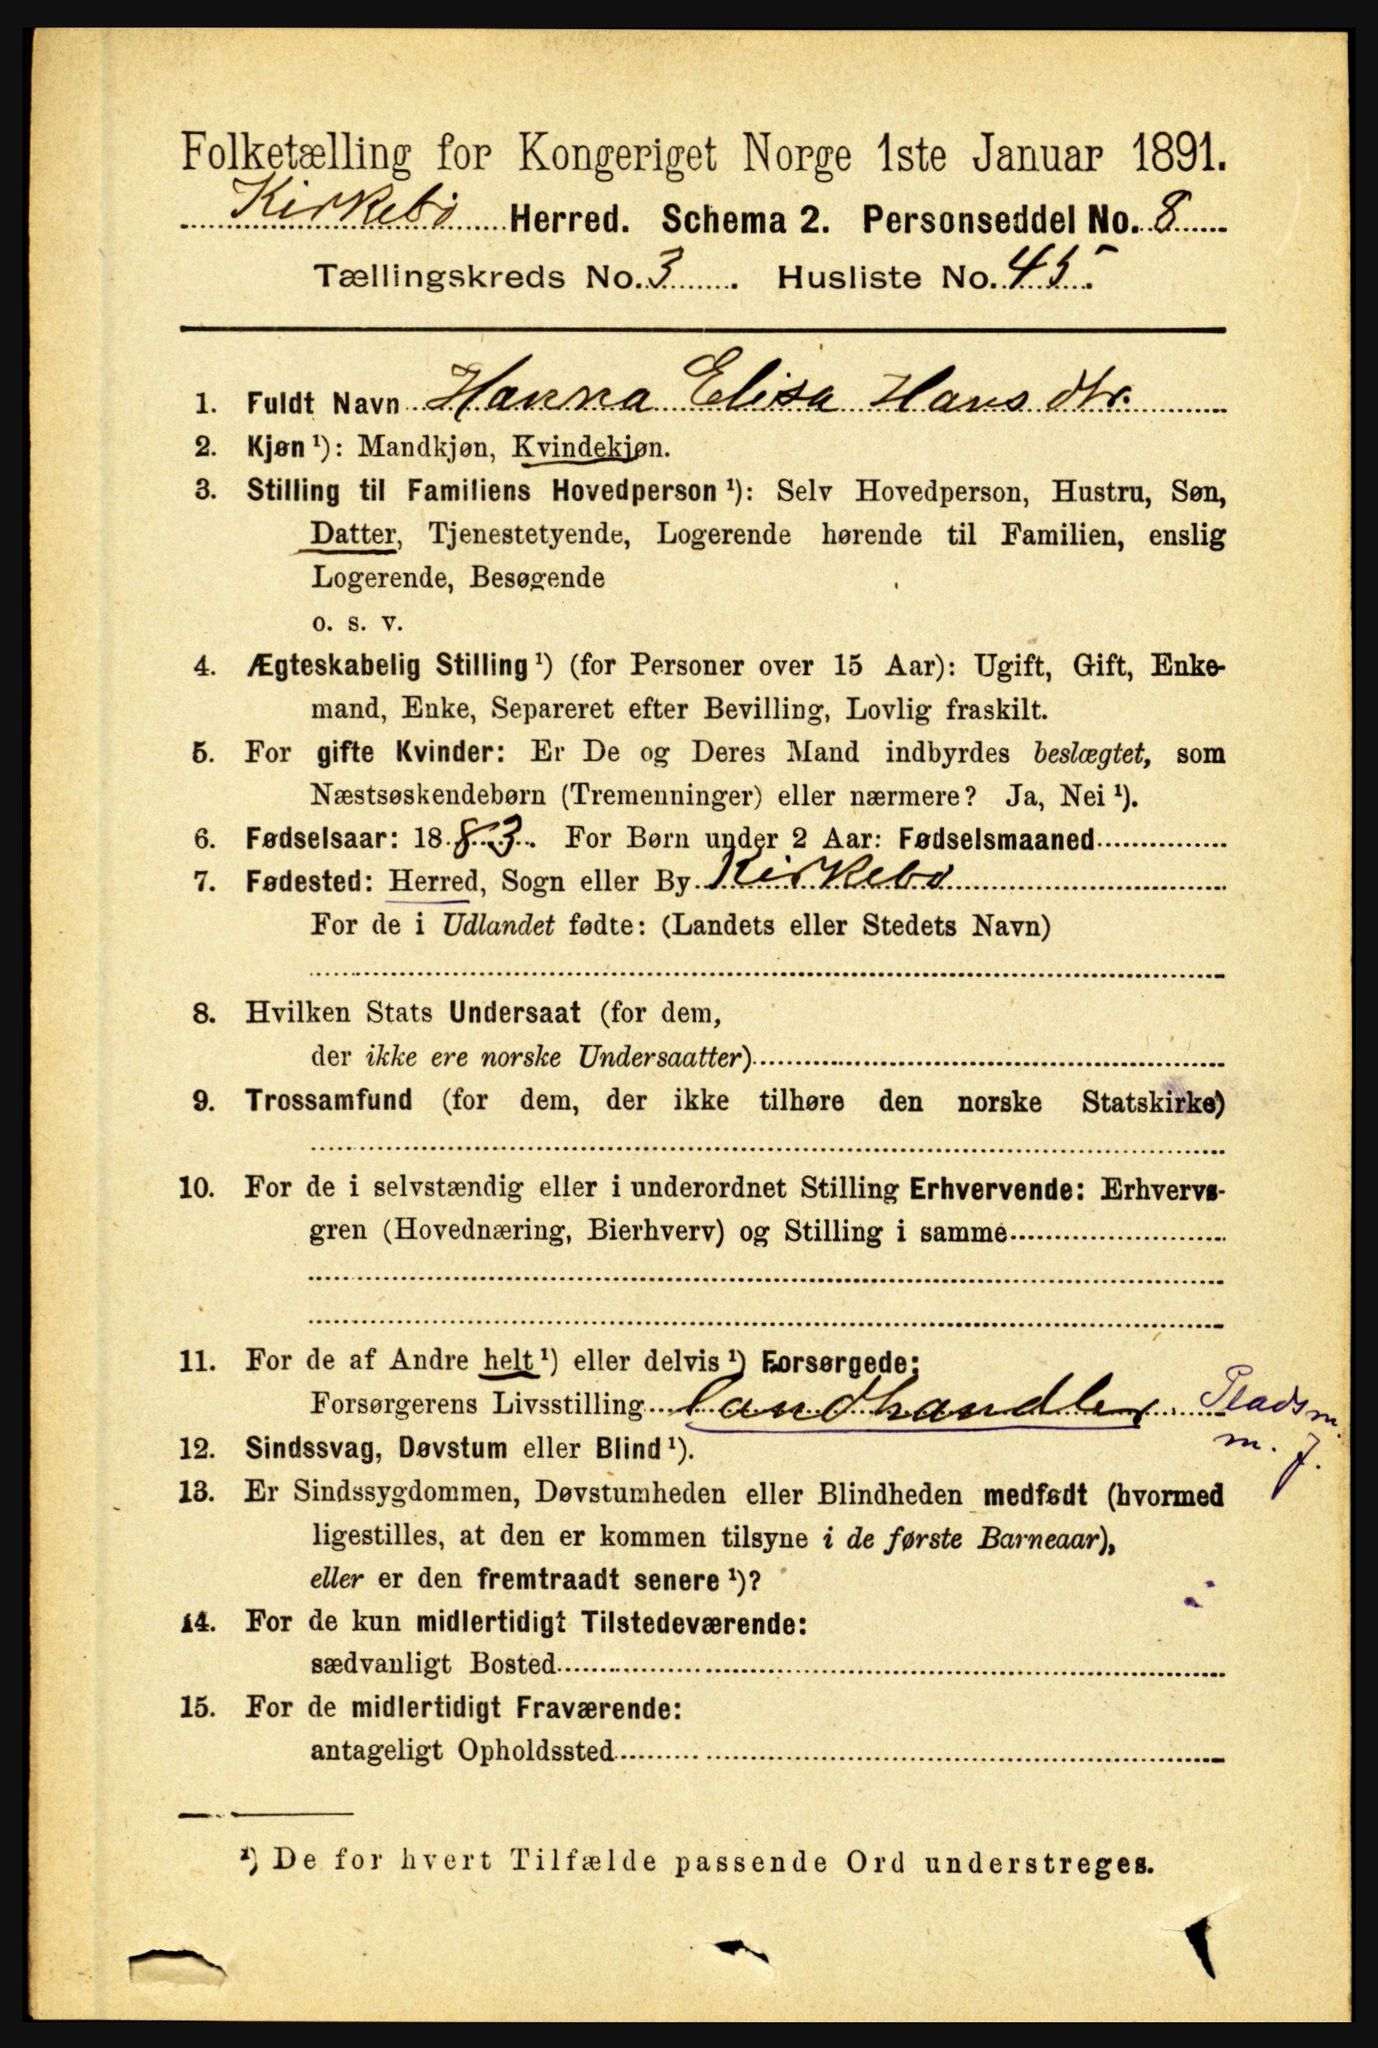 Folketælling for Kongeriget Norge 1ste Januar 1891.
Kirkebø Herred. Schema 2. Personseddel No. 8
Tællingskreds No. 3. Husliste No. 45
1. Fuldt Navn Hanna Elisa Hansdtr.
2. Kjøn ¹): Mandkjøn, Kvindekjøn.
3. Stilling til Familiens Hovedperson ¹): Selv Hovedperson, Hustru, Søn,
Datter, Tjenestetyende, Logerende hørende til Familien, enslig
Logerende, Besøgende
o. s. v.
4. Ægteskabelig Stilling ¹) (for Personer over 15 Aar): Ugift, Gift, Enke-
mand, Enke, Separeret efter Bevilling, Lovlig fraskilt.
5. For gifte Kvinder: Er De og Deres Mand indbyrdes beslægtet, som
Næstsøskendebørn (Tremenninger) eller nærmere? Ja, Nei ¹).
6. Fødselsaar: 1883. For Børn under 2 Aar: Fødselsmaaned
7. Fødested: Herred, Sogn eller By Kirkebø
For de i Udlandet fødte: (Landets eller Stedets Navn)
8. Hvilken Stats Undersaat (for dem,
der ikke ere norske Undersaatter)
9. Trossamfund (for dem, der ikke tilhøre den norske Statskirke)
10. For de i selvstændig eller i underordnet Stilling Erhvervende: Erhvervs-
gren (Hovednæring, Bierhverv) og Stilling i samme
11. For de af Andre helt ¹) eller delvis ¹) Forsørgede:
Forsørgerens Livsstilling Landhandler Pladsm.
m. j.
12. Sindssvag, Døvstum eller Blind ¹).
13. Er Sindssygdommen, Døvstumheden eller Blindheden medfødt (hvormed
ligestilles, at den er kommen tilsyne i de første Barneaar),
eller er den fremtraadt senere ¹)?
14. For de kun midlertidigt Tilstedeværende:
sædvanligt Bosted
15. For de midlertidigt Fraværende:
antageligt Opholdssted
¹) De for hvert Tilfælde passende Ord understreges.